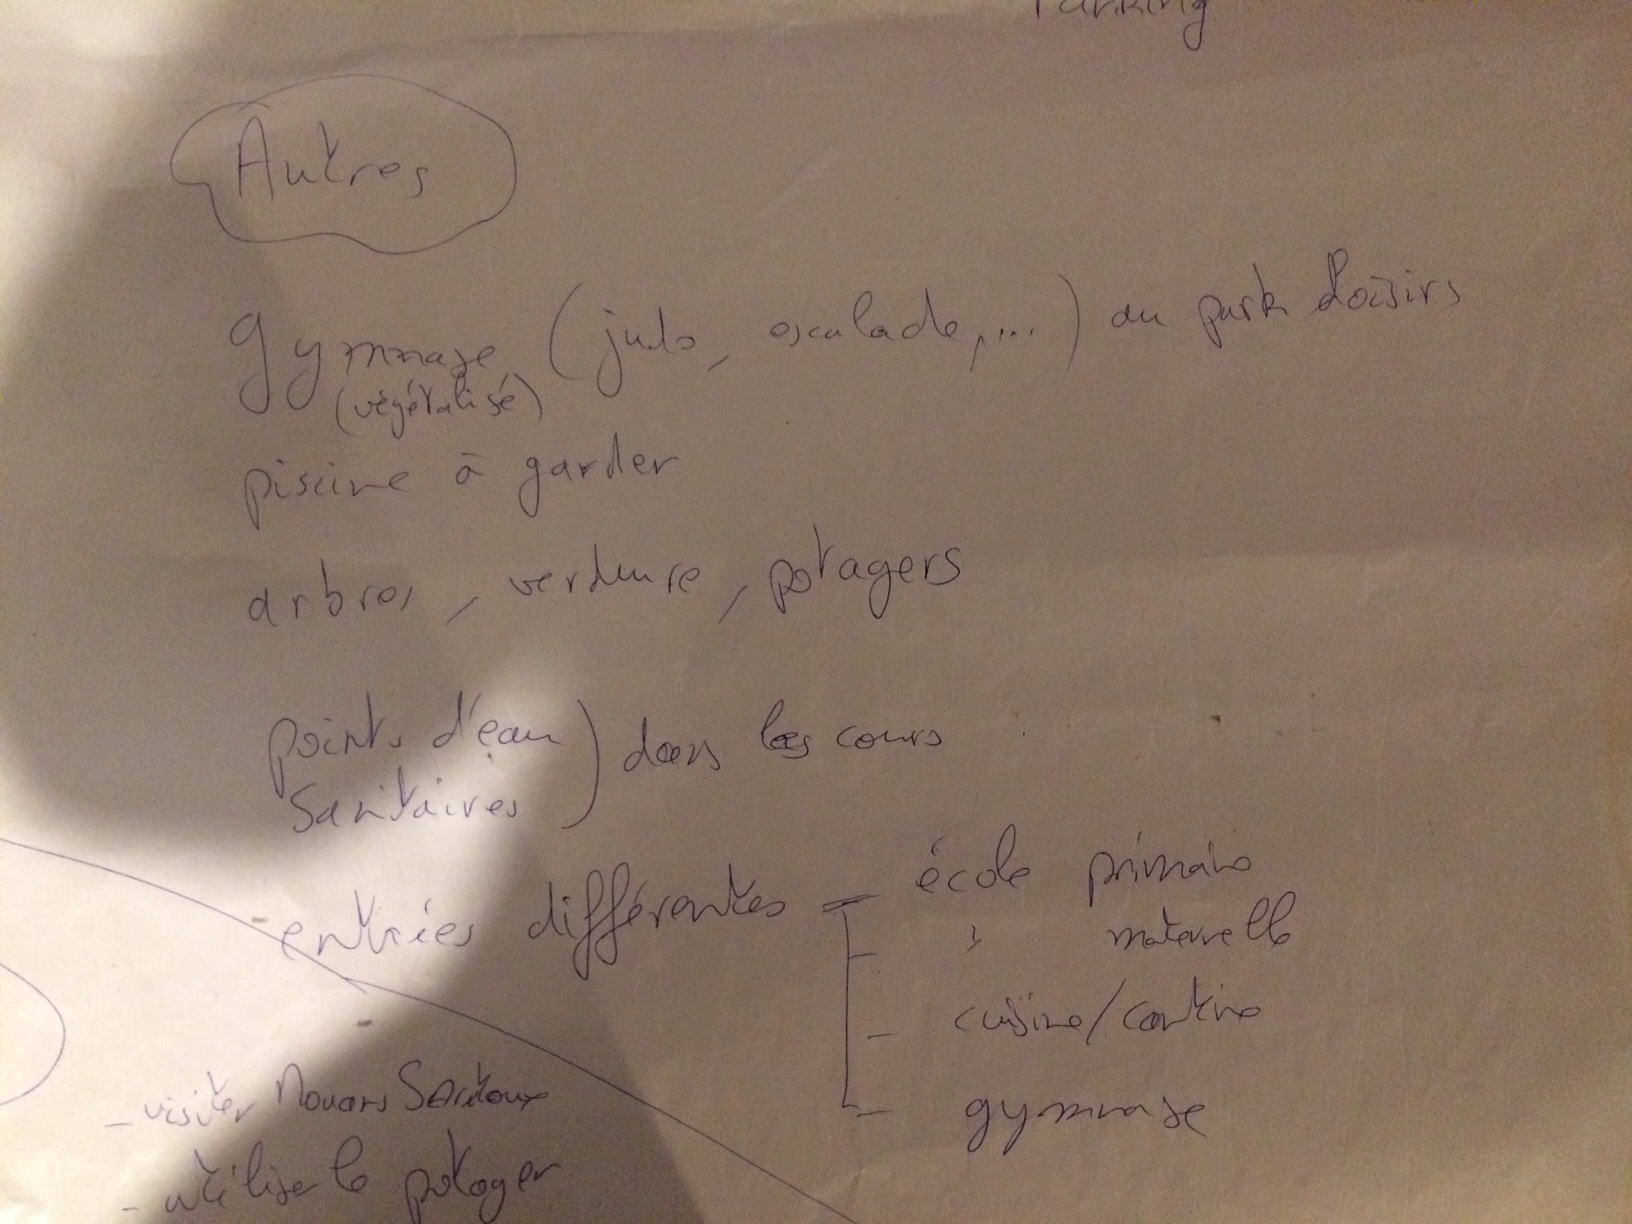 Parking
Autres
gymnase (judo, escalade,...) au park loisirs
(végétalisé)
piscine à garder
arbres, verdure, potagers
points d'eau ) dans les cours
sanitaires
entrées différentes - école primaire
- " maternelle
- cuisine/cantine
- gymnase
- visiter Mouans Sartoux
- utiliser le potager